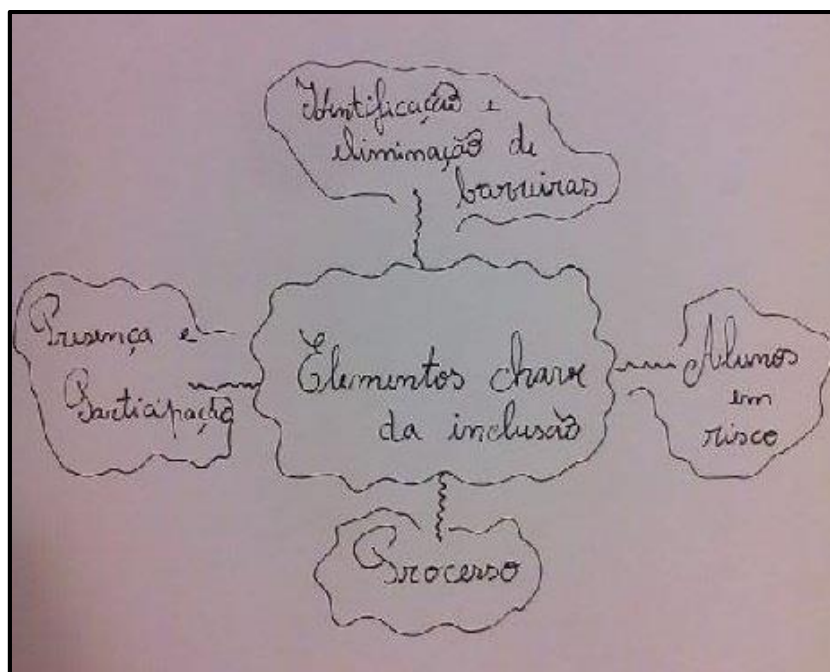 Identificação e
eliminação de
barreiras
Presença e
Participação
Elementos chave
da inclusão
Alunos
em
risco
Processo